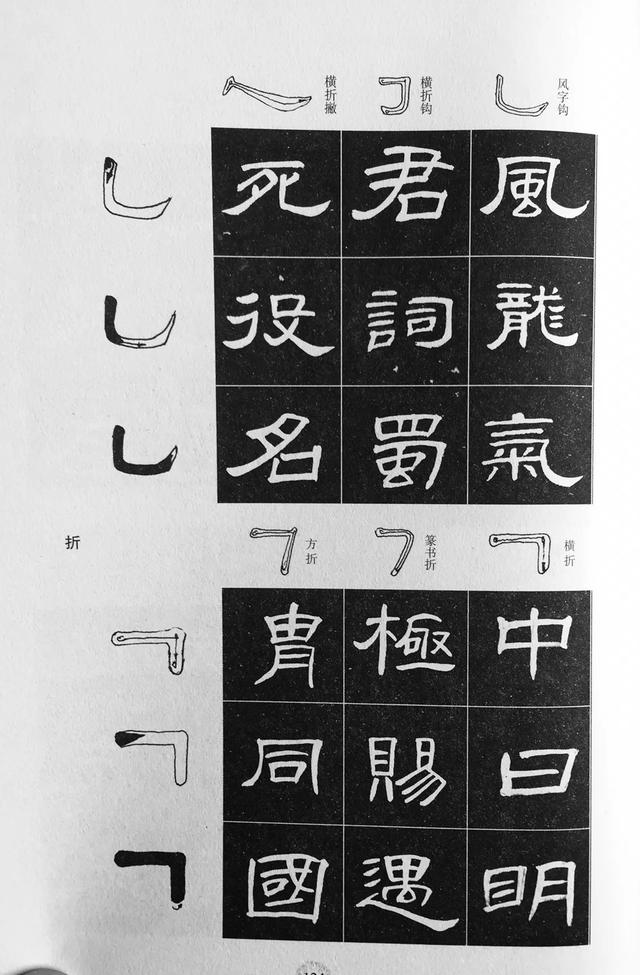 风字钩
風龍氣
横折钩
君詞蜀
横折撇
死役名
折
横折
中曰明
篆书折
極賜遇
方折
胄同國